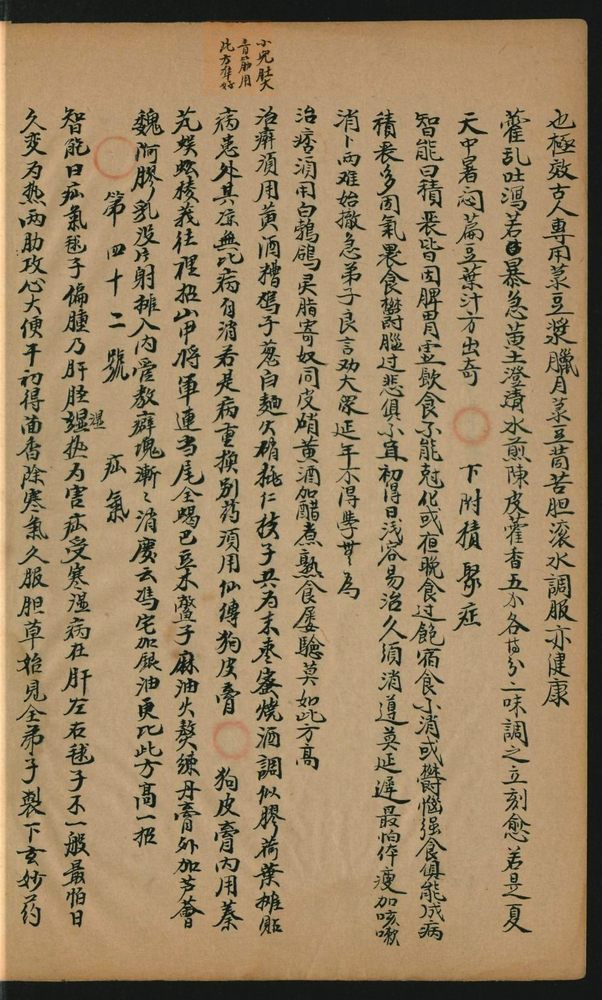 小兒肚大
青筋用
此方準好
也極效古人專用菉豆漿臘月菉豆茼苦胆滾水調服亦健康
藿乱吐瀉若暴急黄土澄清水煎陳皮藿香五分各二味調之立刻愈若是夏
天中暑悶萹豆葉汁方出奇 下附積聚症
智能曰積聚皆因脾胃虛飲食不能尅化或夜晚食过飽宿食不消或欝惱强食俱能成病
積聚多因氣裹食欝腦过悲俱不宜初得日浅容易治久須消導莫延遲最怕倅瘦加咳嗽
消卜两难始撤急弟子良言劝大衆延年不得學無為
治痞須用白鹁鴿灵脂寄奴同皮硝黄酒加醋煮熟食屡驗莫如此方高
治癖須用黄酒糟梔子葱白麵火硝桃仁枝子共为末枣蜜燒酒調似膠荷葉攤貼
病患处其凉無比病自消若是病重換别药須用仙傳狗皮膏 狗皮膏内用蓁
艽蜈蚣稜莪往裡招山甲将軍連当尾全蝎巴豆木鱉子麻油火熬練丹膏外加芦薈
魏阿膠乳没片射攤入内愛教癖塊漸〻消慶云馮宅加银油更比此方高一招
第四十二號 疝氣
智能曰疝氣毬子偏腫乃肝胫濕热为害疝受寒濕病在肝左右毬子不一般最怕日
濕
久变为热两肋攻心大便干初得茴香除寒氣久服胆草始見全弟子製下玄妙药